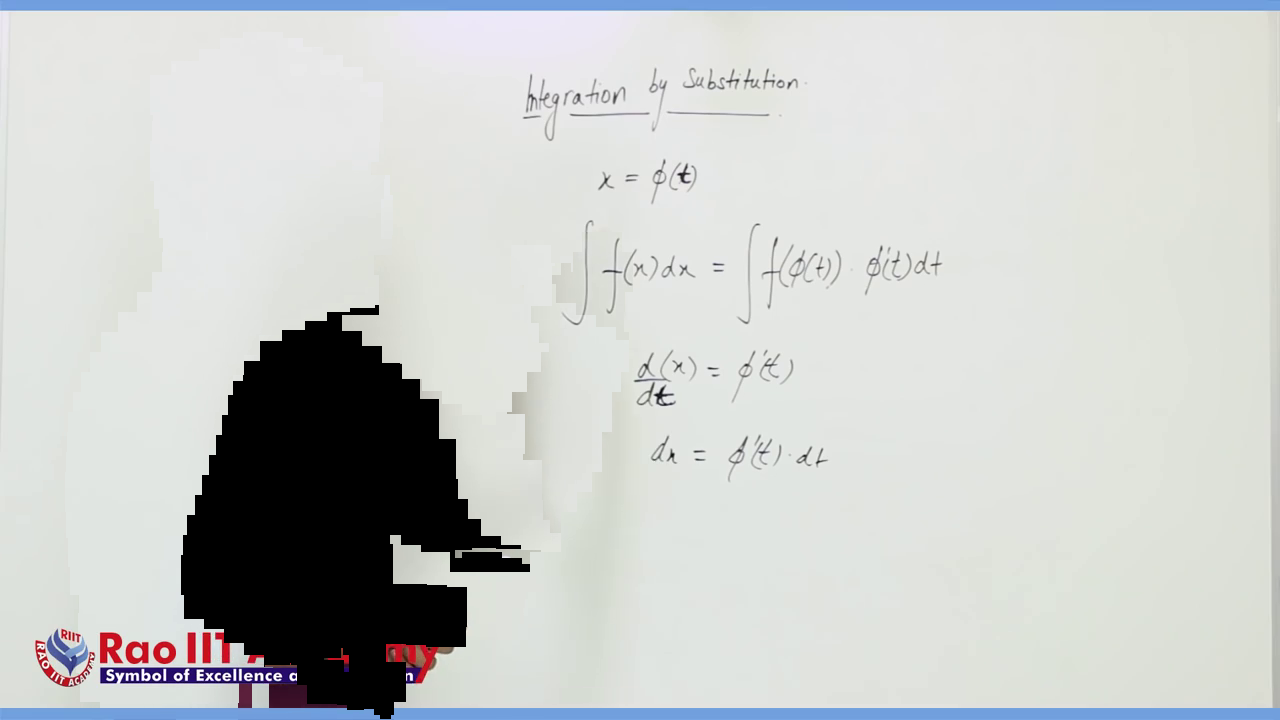 Integration by Substitution.
x = ϕ(t)
∫ f(x) dx = ∫ f(ϕ(t)) · ϕ'(t) dt
d/dt (x) = ϕ'(t)
dx = ϕ'(t) · dt
RIIT
RAO IIT ACADEMY
Rao IIT
Symbol of Excellence